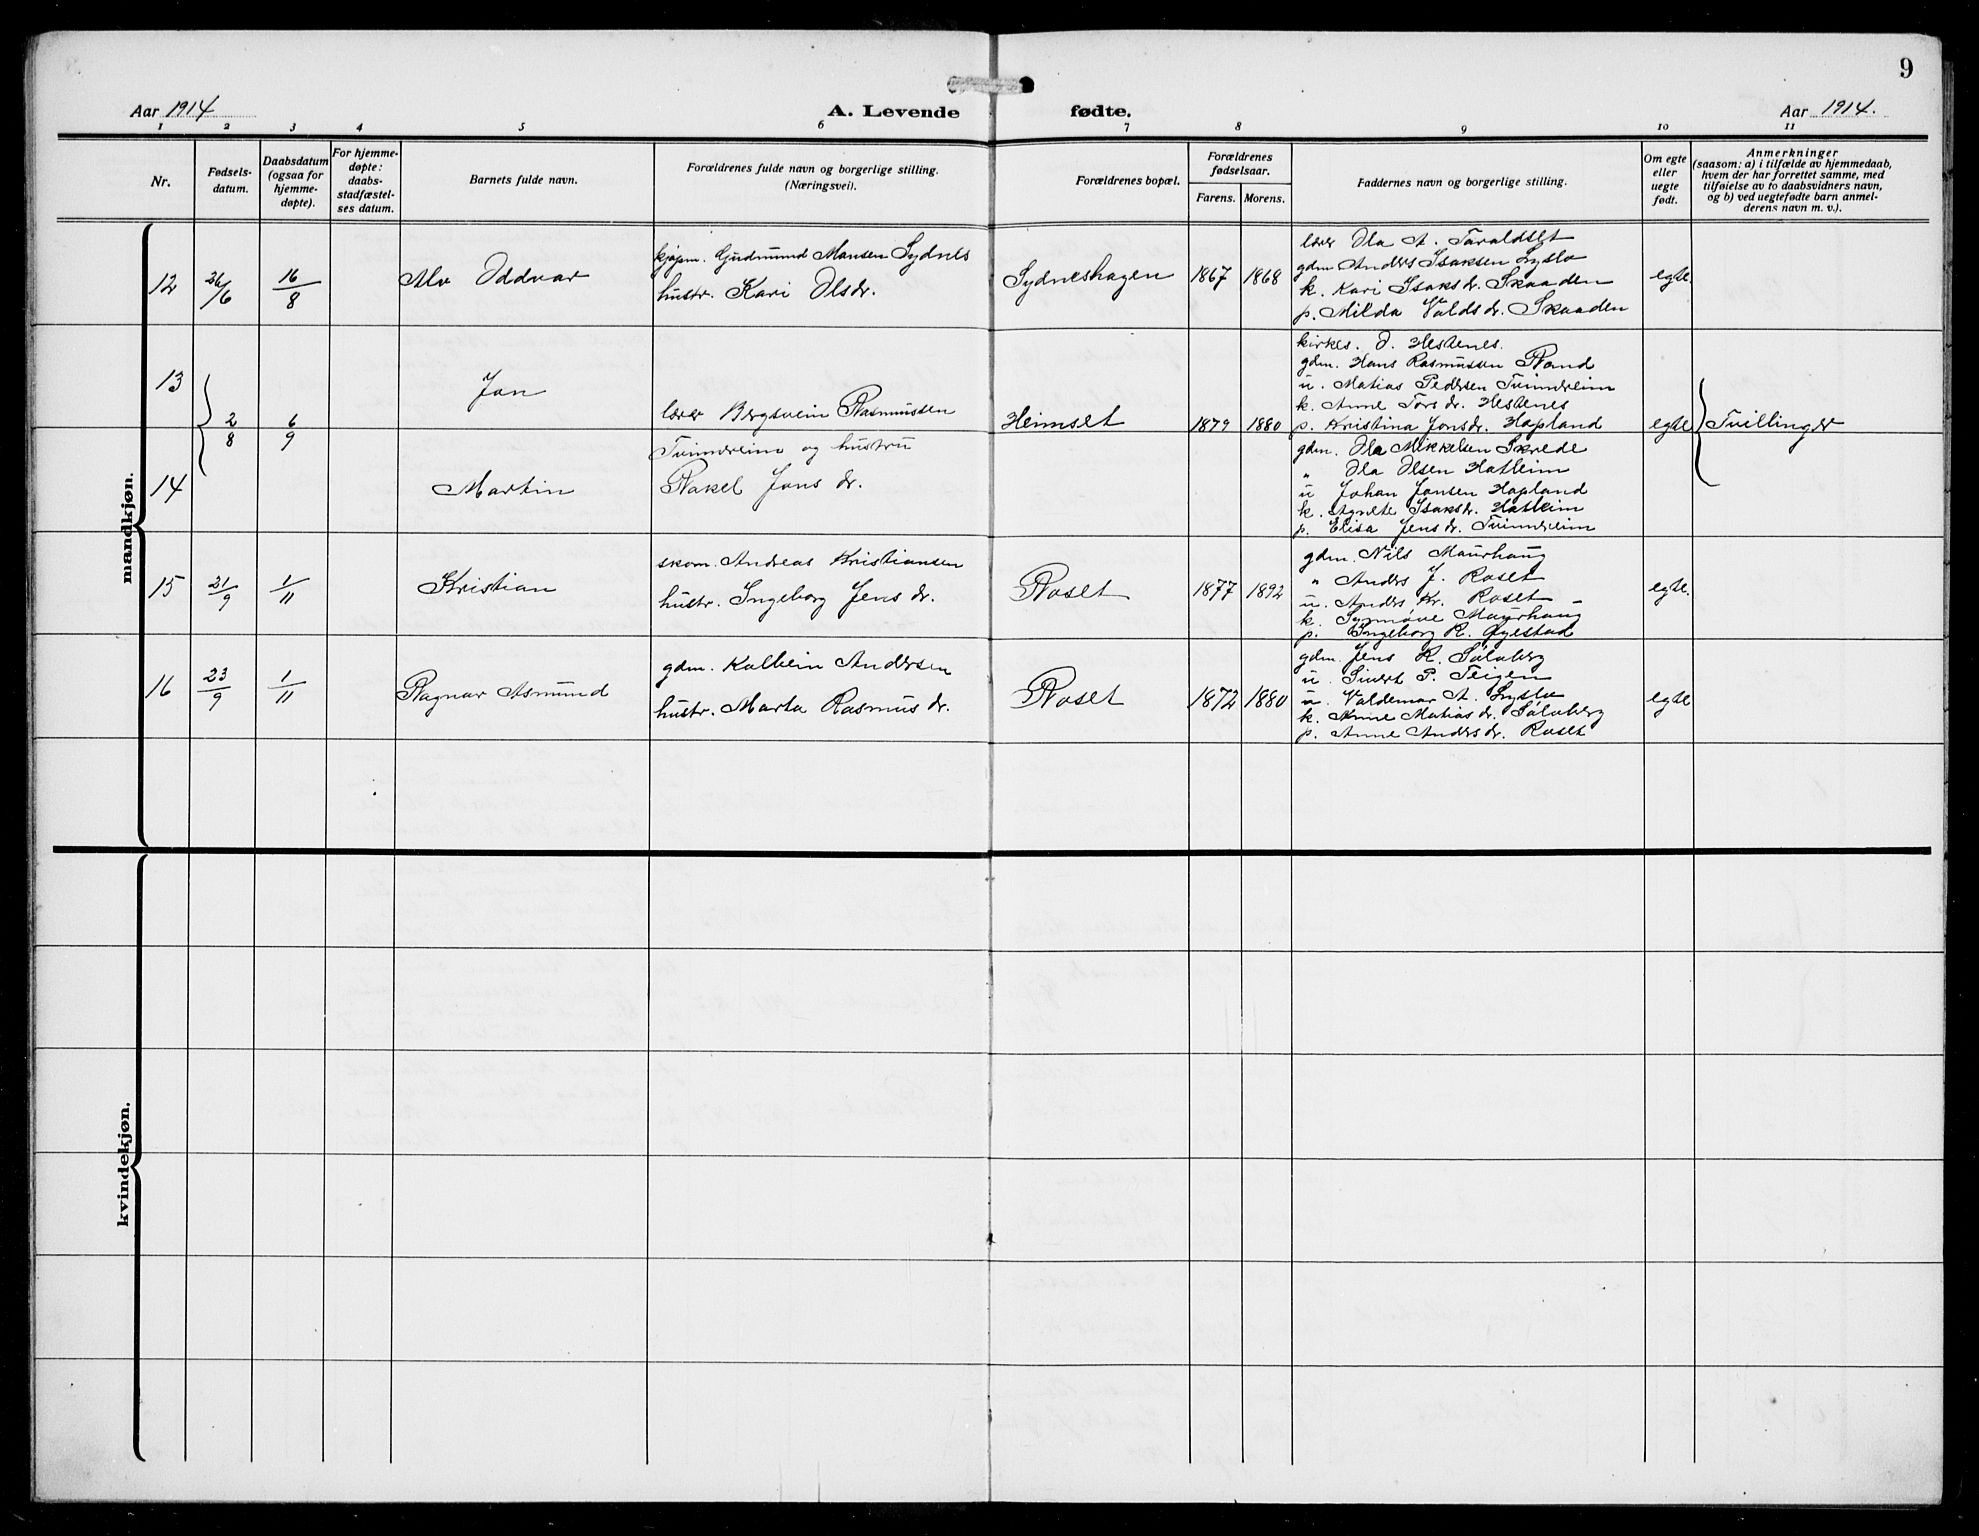 9
Aar 1914
A. Levende fødte.
Aar 1914.
1 2 3 4 5 6 7 8 9 10 11
Nr.
Fødsels-
datum.
Daabsdatum
(ogsaa for
hjemme-
døpte).
For hjemme-
døpte:
daabs-
stadfæstel-
ses datum.
Barnets fulde navn.
Forældrenes fulde navn og borgerlige stilling.
(Næringsvei).
Forældrenes bopæl.
Forældrenes
fødselsaar.
Farens. Morens.
Faddernes navn og borgerlige stilling.
Om egte
eller
uegte
født.
Anmerkninger
(saasom: a) i tilfælde av hjemmedaab,
hvem der har forrettet samme, med
tilføielse av to daabsvidners navn,
og b) ved uegtefødte barn anmel-
derens navn m. v.).
mandkjøn.
12
26/6
16/8
Alv Oddvar
kjøpm. Gudmund Mansen Sydnes
hustr. Kari Olsdr.
Sydneshagen
1867 1868
lærer Ola A. Taraldset
gdm. Anders Isaksen Lyslo
k. Kari Isaksdr. Skaaden
p. Milda Valdsdr. Skaaden
egte.
13
2/8
6/9
Jon
lærer Bergsvein Rasmussen
Tvinnereim og hustru
Rakel Jonsdr.
Heimset
1879 1880
kirkes. O. Hestenes.
gdm. Hans Rasmussen Rand
u. Matias Pedersen Tvinnereim
k. Anne Torsdr. Hestenes
p. Kristina Jonsdr. Hopland
egte
Tvillinger
14
Martin
gdm. Ola Mikkelsen Skrede
" Ola Olsen Hatleim
u Johan Jonsen Hopland
k. Agnete Isaksdr. Hatleim
p. Elisa Jensdr. Tvinnereim
15
21/9
1/11
Kristian
skom. Andreas Kristiansen
hustr. Ingeborg Jensdr.
Roset
1877 1892
gdm. Nils Maurhaug
" Anders J. Roset
u. Anders Kr. Roset
k. Synnøve Maurhaug
p. Ingeborg R. Øyestad
egte.
16
23/9
1/11
Ragnar Asmund
gdm. Kolbein Andersen
hustr. Marta Rasmusdr.
Roset
1872 1880
gdm. Jens R. Sølvberg
u. Sivert P. Teigen
u. Valdemar A. Lyslo
k. Anne Matiasdr. Sølvberg
p. Anne Andersdr. Roset
egte
kvindekjøn.